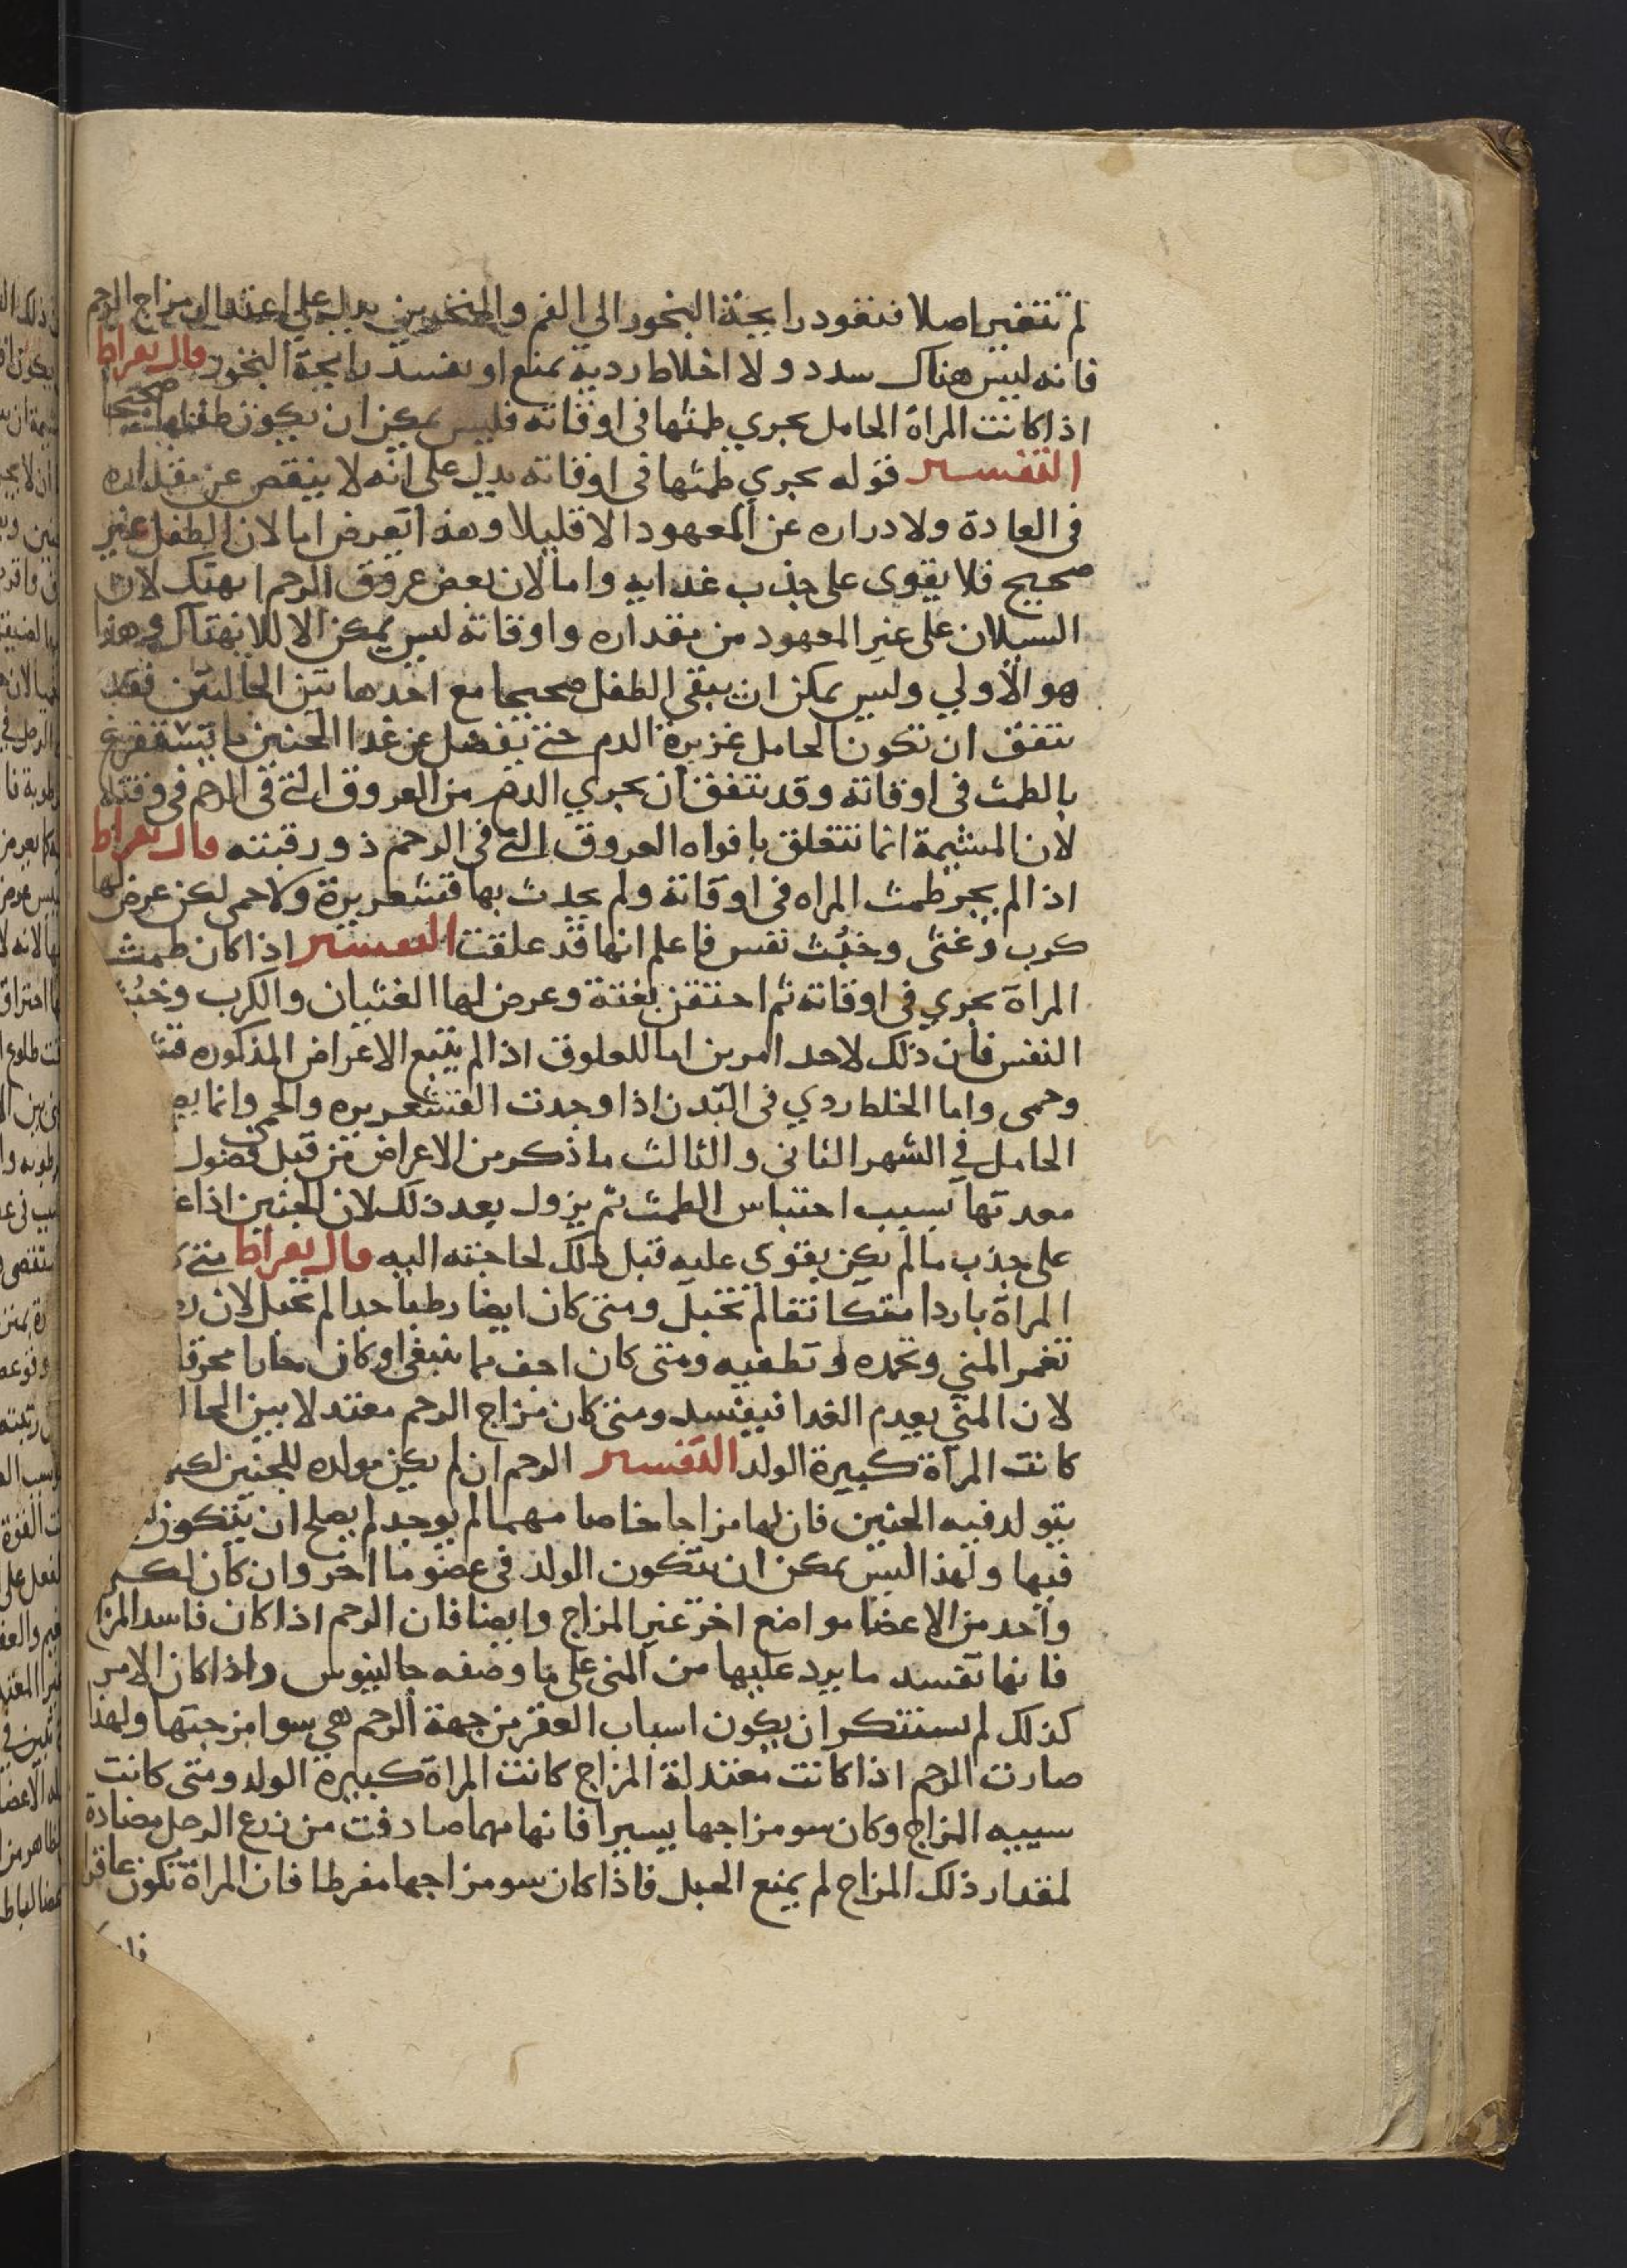 لم تتغير اصلا فنفود رايحة البخور الى الفم والمنخرين يدل على اعتدال مزاج الرحم
فانه ليس هناك سدد ولا اخلاط ردية يمنع او يفسد رايحة البخور قال بقراط
اذا كانت المراة الحامل يجري طمثها في اوقاته فليس يمكن ان يكون طفلها صحيحا
التفسير قوله يجري طمثها في اوقاته يدل على انه لا ينقص عن مقداره
في العادة ولا دراره عن المعهود الا قليلا وهذا يعرض اما لان الطفل غير
صحيح فلا يقوى على جذب غدايه واما لان بعض عروق الرحم انهتك لان
السيلان على غير المعهود من مقداره واوقاته ليس يمكن الا للانهتاك وهذا
هو الاولي وليس يمكن ان يبقى الطفل صحيحا مع احد هاتين الحالتين فقد
يتفق ان تكون الحامل غزيرة الدم حتى يفضل عن غدا الجنين ما يستفرغ
بالطمث في اوقاته وقد يتفق ان يجري الدم من العروق التي في الرحم في وقته لا
لان المشيمة انما تتعلق بافواه العروق التي في الرحم ذو رقبته قال بقراط
اذا لم يجر طمث المراه في اوقاته ولم يحدث بها قشعريرة ولا حمى لكن عرض لها
كرب وغثى وخبُث نفس فاعلم انها قد علقت التفسير اذا كان طمث
المراة يجري في اوقاته ثم احتقن بغتة وعرض لها الغثيان والكرب وخبُث
النفس فان ذلك لاحد امرين اما للعلوق اذا لم يتبع الاعراض المذكوره قشـ
وحمى واما الخلط ردي في البدن اذا وجدت القشعريره والحمى وانما يعـ
الحامل في الشهر الثاني والثالث ما ذكر من الاعراض من قبل فضول في
معدتها بسبب احتباس الطمث ثم يزول بعد ذلك لان الجنين اذا عـ
على جذب ما لم يكن يقوى عليه قبل ذلك لحاجته اليه قال بقراط متى كـ
المراة باردا متكاثفا لم تحبل ومتى كان ايضا رطبا جدا لم تحبل لان رطـ
تغمر المني وتجمده وتطفيه ومتى كان اجف مما ينبغي او كان حارا محرقا
لان المني يعدم الغدا فيفسد ومتى كان مزاج الرحم معتدلا بين الحالـ
كانت المراة كبيرة الولد التفسير الرحم ان لم يكن مولده للجنين لكنـ
يتولد فيه الجنين فان لها مزاجا خاصا مهما لم يوجد لم يصلح ان يتكون
فيها ولهذا ليس يمكن ان يتكون الولد في عضو ما اخر وان كان لكل
واحد من الاعضا مواضع اخر غير المزاج وايضا فان الرحم اذا كان فاسد المزاج
فانها تفسد ما يرد عليها من المنى على ما وصفه جالينوس واذا كان الامر
كذلك لم يستنكر ان يكون اسباب العقر من جهة الرحم هي سوا مزجتها ولهذا
صارت الرحم اذا كانت معتدلة المزاج كانت المراة كبيرة الولد ومتى كانت
سيبه المزاج وكان سو مزاجها يسيرا فانها مهما صادفت من زرع الرجل مضادة
لمقدار ذلك المزاج لم يمنع الحبل فاذا كان سو مزاجها مفرطا فان المراة تكون عاقرا